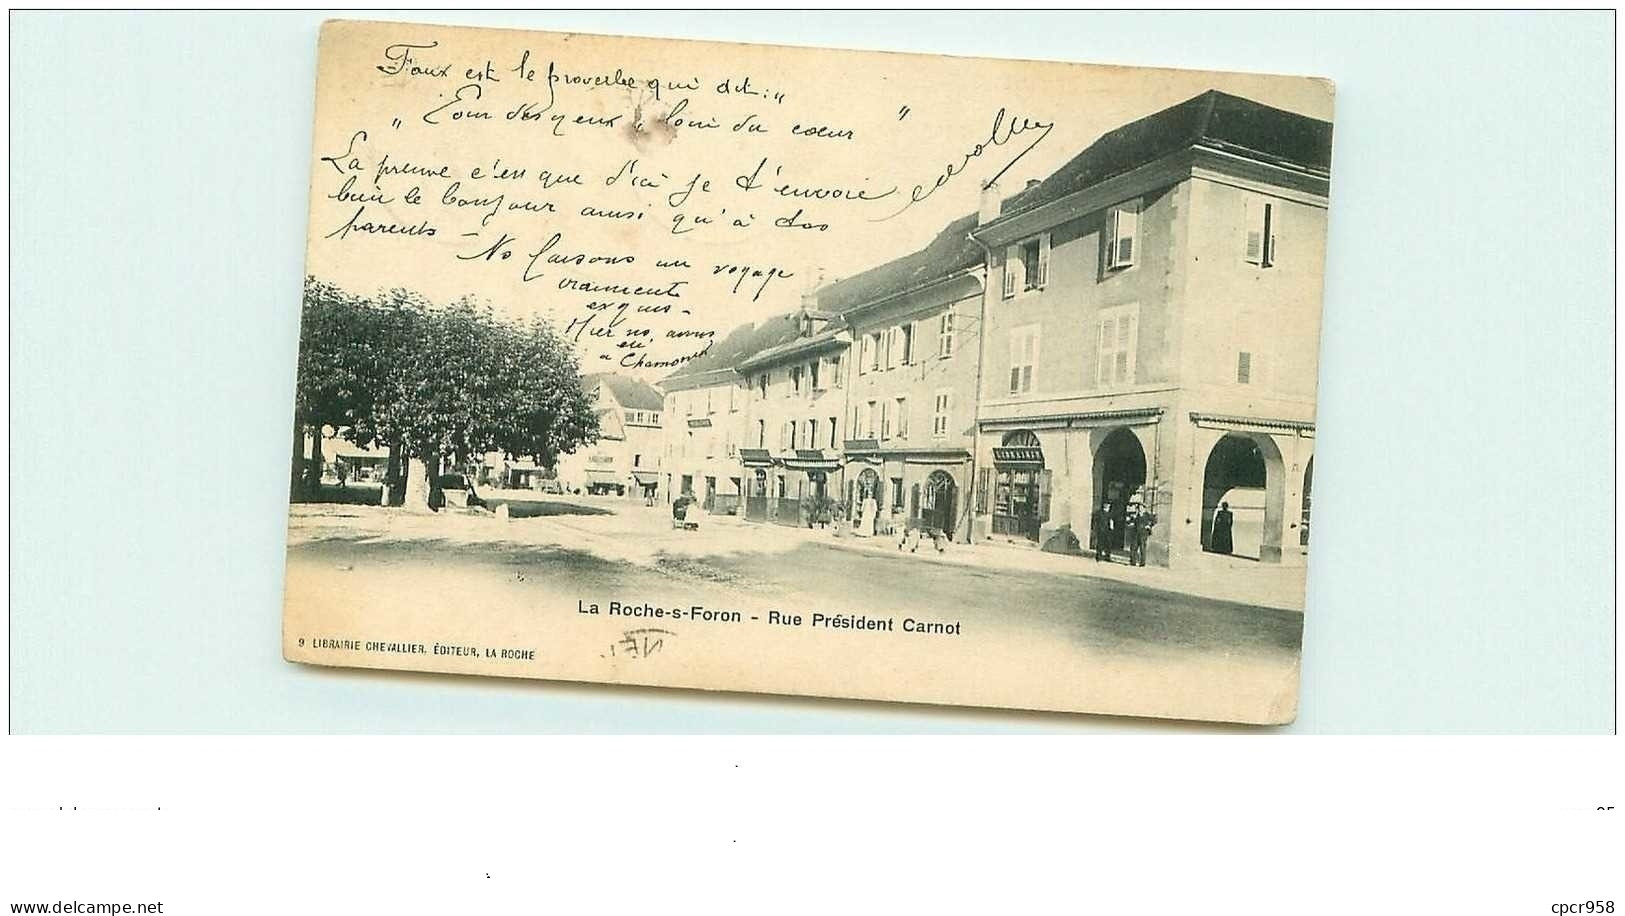 Faux est le proverbe qui dit :"
" Loin des yeux, loin du cœur "
La preuve c'est que d'ici je t'envoie
bien le bonjour ainsi qu'à tes
parents -
Ns faisons un voyage
vraiment
exquis -
Hier ns avons
été
à Chamonix
LIBRAIRIE
La Roche-s-Foron - Rue Président Carnot
9 LIBRAIRIE CHEVALLIER, ÉDITEUR, LA ROCHE
www.delcampe.net
cpcr958